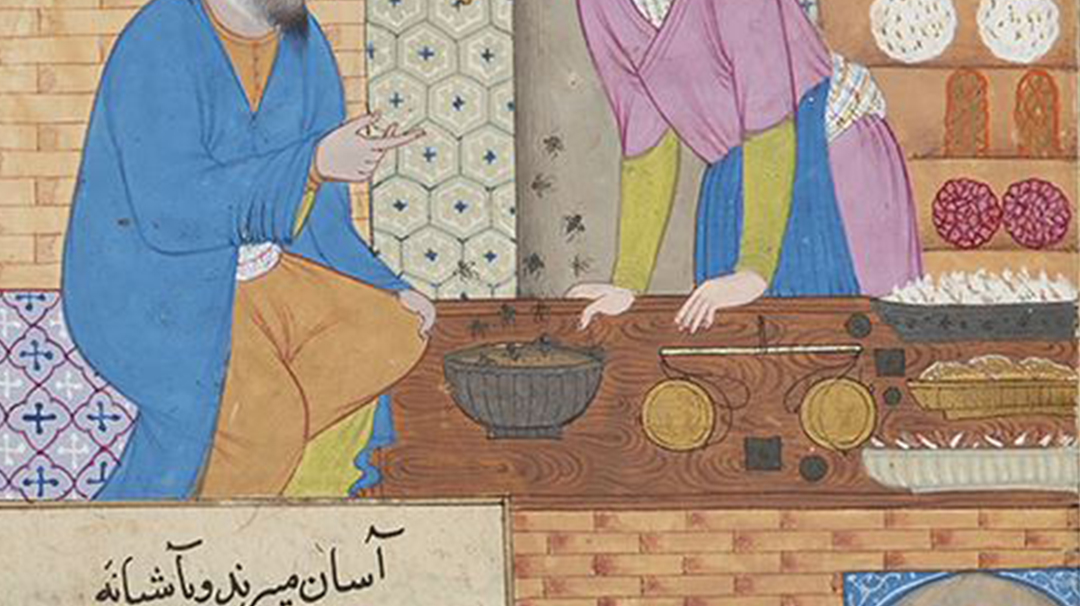 آسان میبرند و باشانه